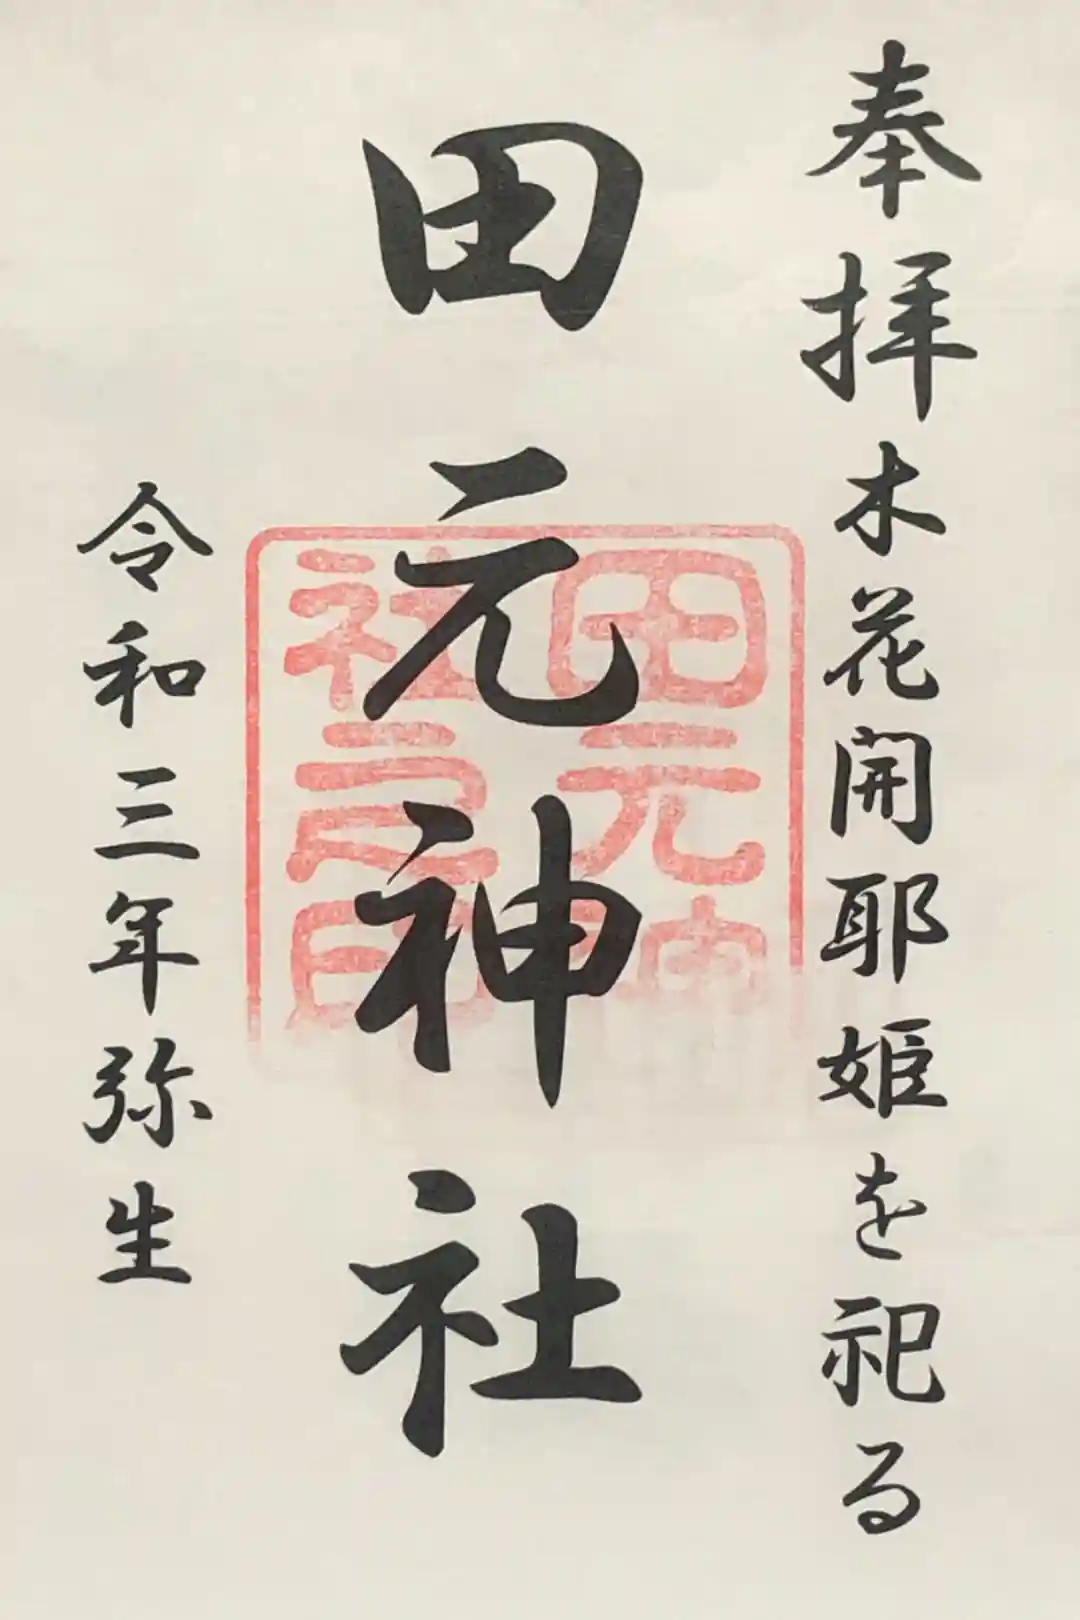 奉拝木花開耶姫を祀る
田元神社
令和三年弥生
田元神
社之印